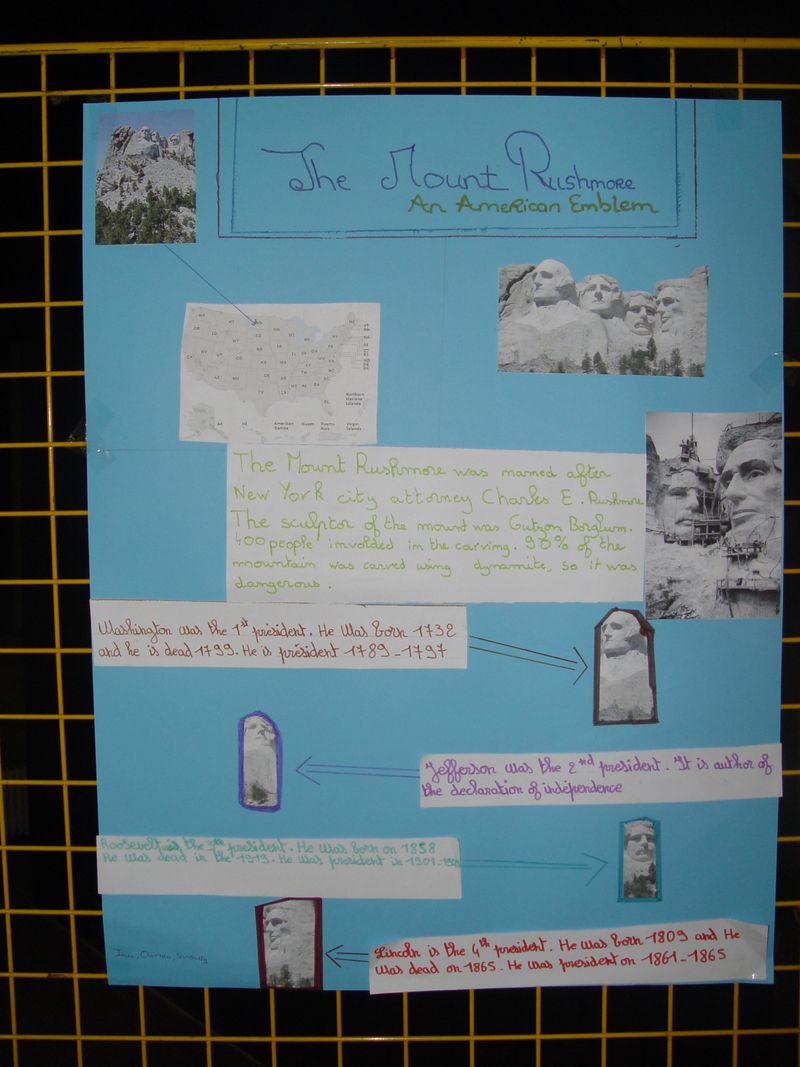 The Mount Rushmore
An American Emblem
American Samoa
Guam
Puerto Rico
Virgin Islands
Northern Mariana Islands
The Mount Rushmore was named after
New York city attorney Charles E. Rushmore
The sculptor of the mount was Gutzon Borglum.
400 people involded in the carving. 90% of the
mountain was carved using dynamite, so it was
dangerous.
Washington was the 1st président. He was born 1732
and he is dead 1799. He is président 1789-1797
Jefferson was the 2nd president. It is author of
the declaration of indépendence
Roosevelt is the president. He was born on 1858
He was dead in the 1919. He was president in 1901-1909
Lincoln is the 4th president. He was born 1809 and He
was dead on 1865. He was president on 1861-1865